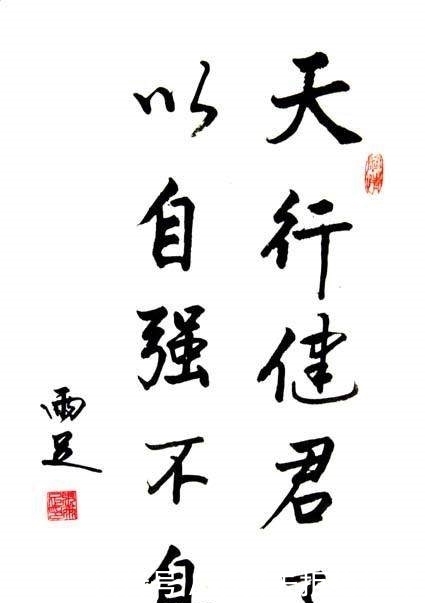 天行健君
以自强不
雨足